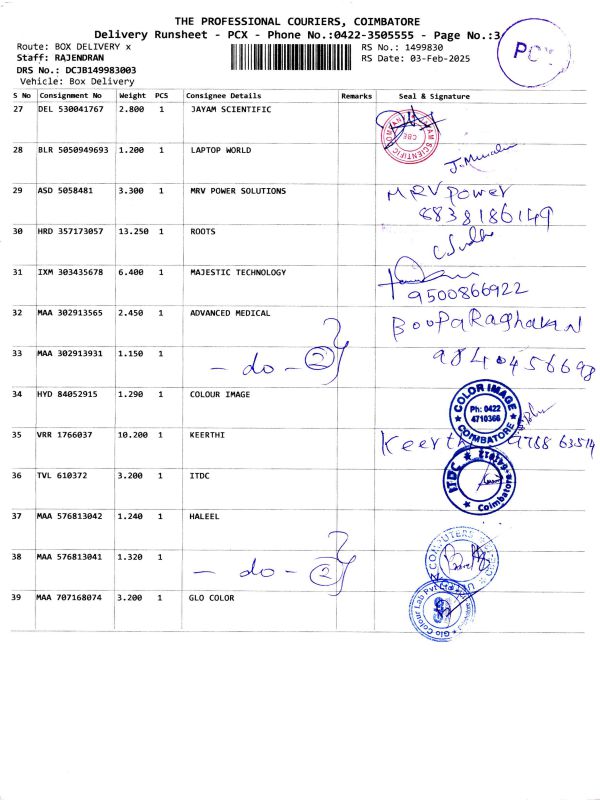 THE PROFESSIONAL COURIERS, COIMBATORE
Delivery Runsheet - PCX - Phone No.:0422-3505555 - Page No.:3
Route: BOX DELIVERY x RS No.: 1499830
Staff: RAJENDRAN RS Date: 03-Feb-2025
DRS No.: DCJB149983003
Vehicle: Box Delivery
PCX
S No Consignment No Weight PCS Consignee Details Remarks Seal & Signature
27 DEL 530041767 2.800 1 JAYAM SCIENTIFIC
CBE
28 BLR 5050949693 1.200 1 LAPTOP WORLD
29 ASD 5058481 3.300 1 MRV POWER SOLUTIONS MRV Power
8838186149
30 HRD 357173057 13.250 1 ROOTS
31 IXM 303435678 6.400 1 MAJESTIC TECHNOLOGY
9500866922
32 MAA 302913565 2.450 1 ADVANCED MEDICAL BooPaRaghavan
33 MAA 302913931 1.150 1 - do - 2 9840456698
34 HYD 84052915 1.290 1 COLOUR IMAGE
COLOR IMAGE
Ph: 0422
4710366
COIMBATORE
35 VRR 1766037 10.200 1 KEERTHI Keerthi 9788 63514
36 TVL 610372 3.200 1 ITDC
ITDC
Coimbatore
37 MAA 576813042 1.240 1 HALEEL
38 MAA 576813041 1.320 1 - do - 2
COMPUTERS
39 MAA 707168074 3.200 1 GLO COLOR
Glo Colour Lab Pvt